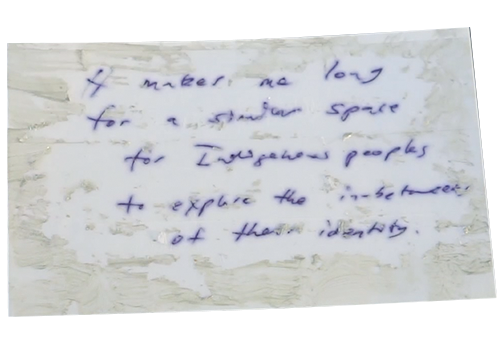 It makes me long
for a similar space
for Indigenous peoples
to explore the in-betweens
of their identity.